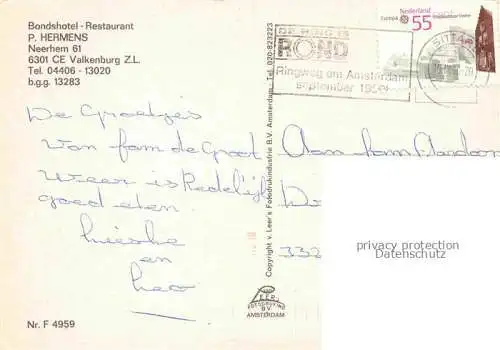 Bondshotel - Restaurant
P. HERMENS
Neerhem 61
6301 CE Valkenburg Z.L.
Tel. 04406 - 13020
b.g.g. 13283
De Groetjes
Van fam de Groot
Weer is Redelijk
goed eten.
en
Leo
Nr. F 4959
Copyright v. Leer's Fotodrukindustrie B.V. Amsterdam - Tel. 020-823223
LEER
B.V.
AMSTERDAM
DE RING IS
ROND
Ringweg om Amsterdam
september 1990
Nederland
Europa
55
SITTARD
Aan fam
332
privacy protection
Datenschutz